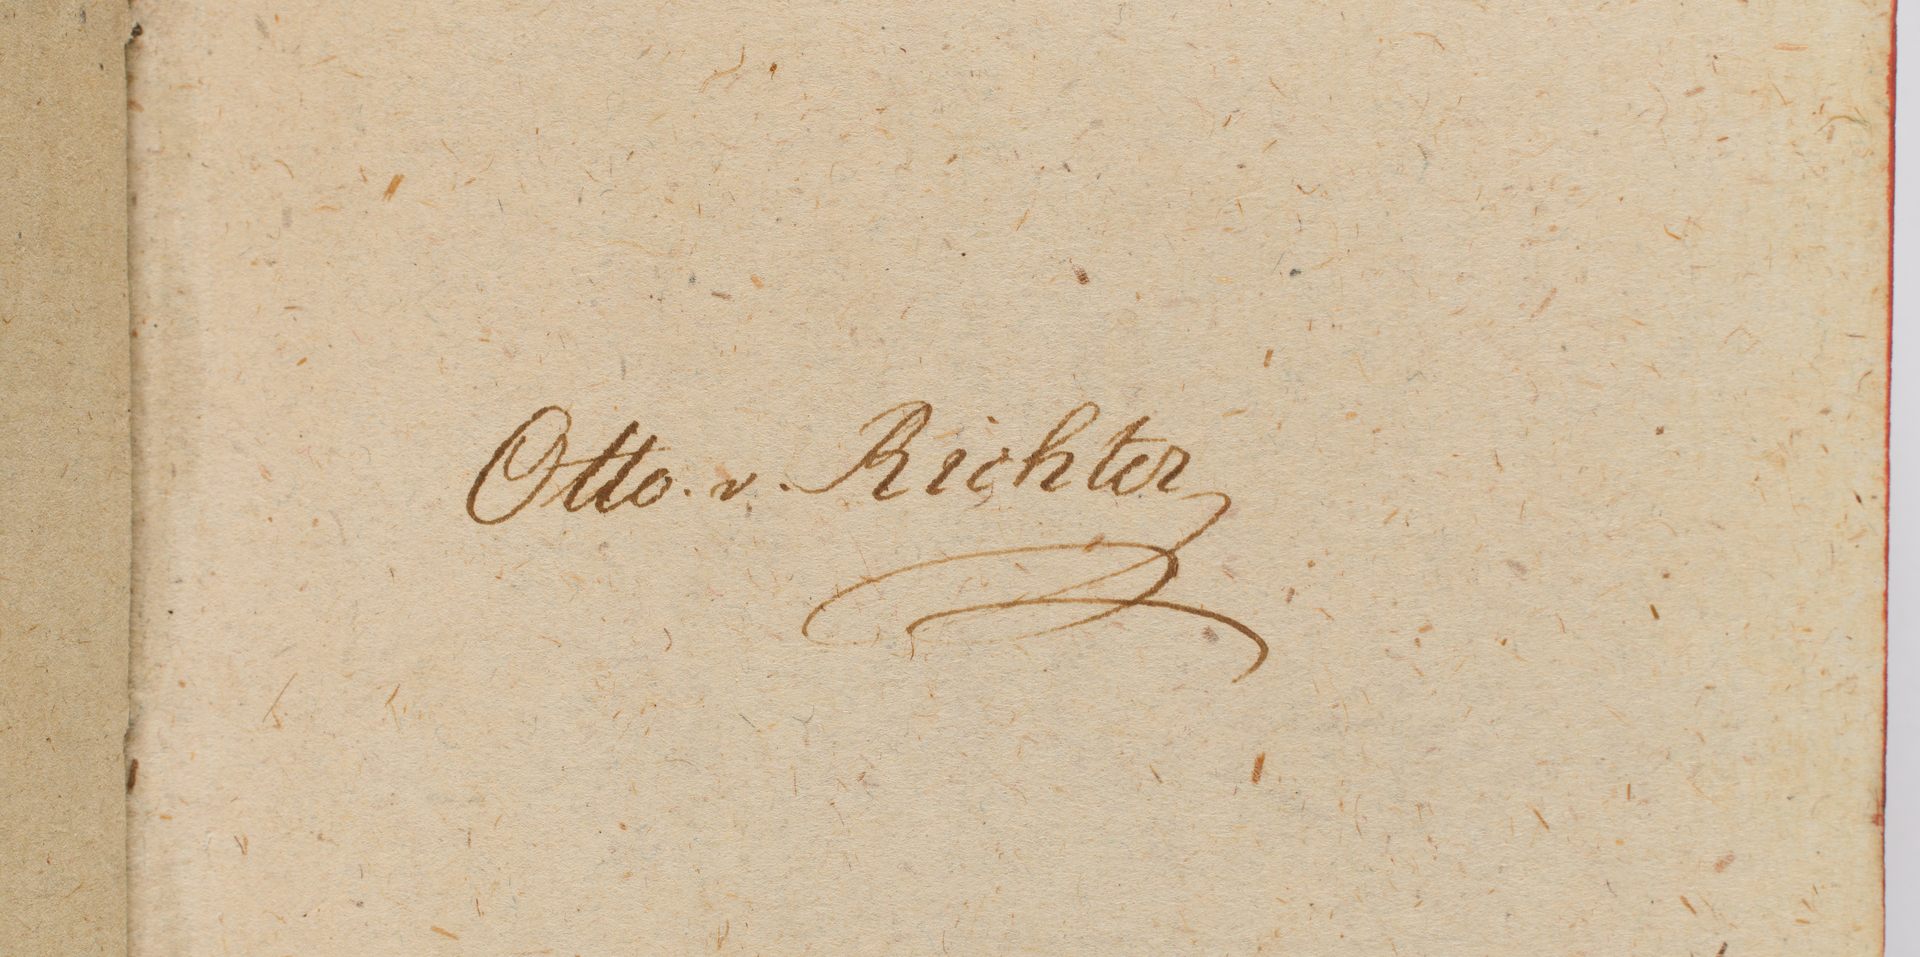 Otto. v. Richter